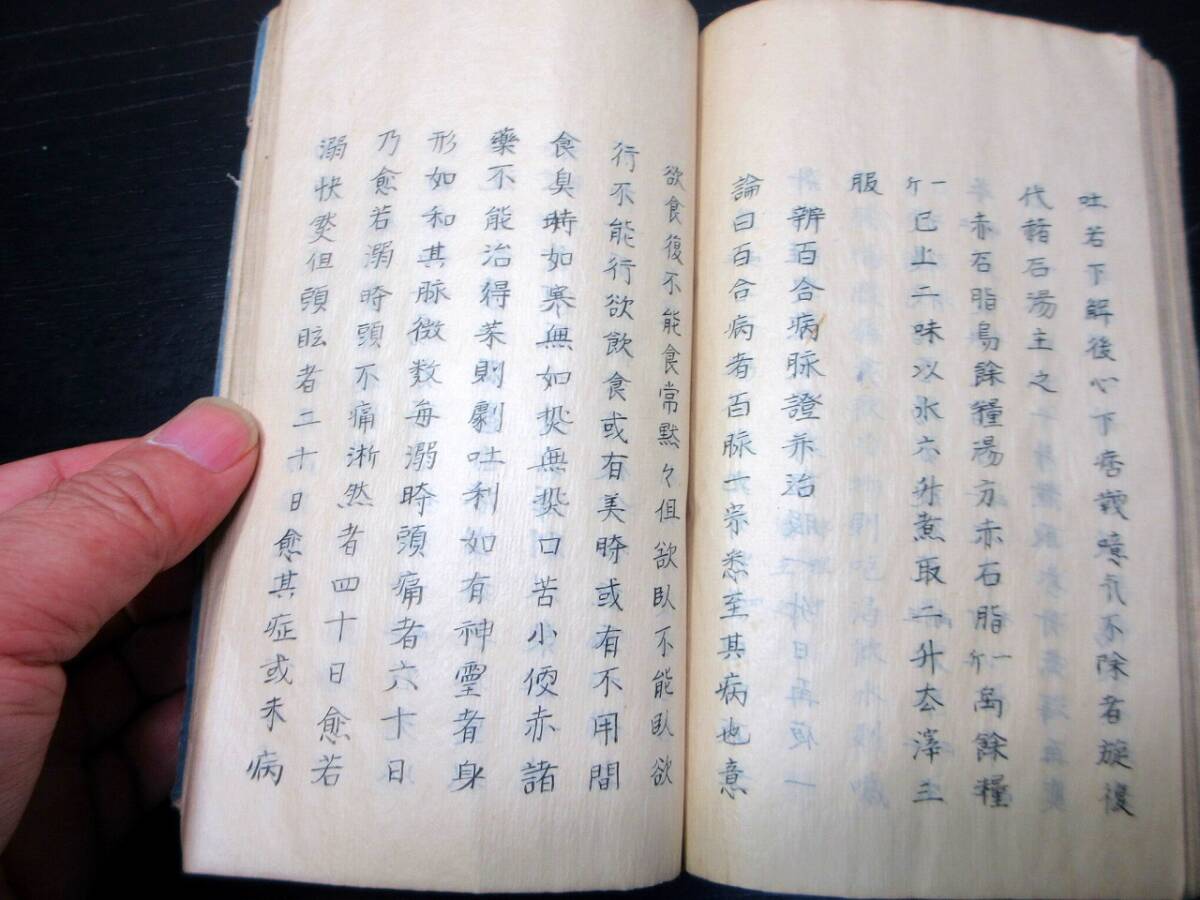 吐若下解後心下痞鞕噫气不除者旋復
代諸石湯主之
赤石脂禹餘糧湯方赤石脂一斤禹餘糧
一斤已上二味以水六升煮取二升去滓三
服
辨百合病脉證并治
論曰百合病者百脉一宗悉至其病也意
欲食復不能食常黙々但欲臥不能臥欲
行不能行欲飲食或有美時或有不用間
食臭時如寒無如𤍠無𤍠口苦小便赤諸
藥不能治得薬則劇吐利如有神靈者身
形如和其脉微数每溺時頭痛者六十日
乃愈若溺時頭不痛淅然者四十日愈若
溺快然但頭眩者二十日愈其症或未病